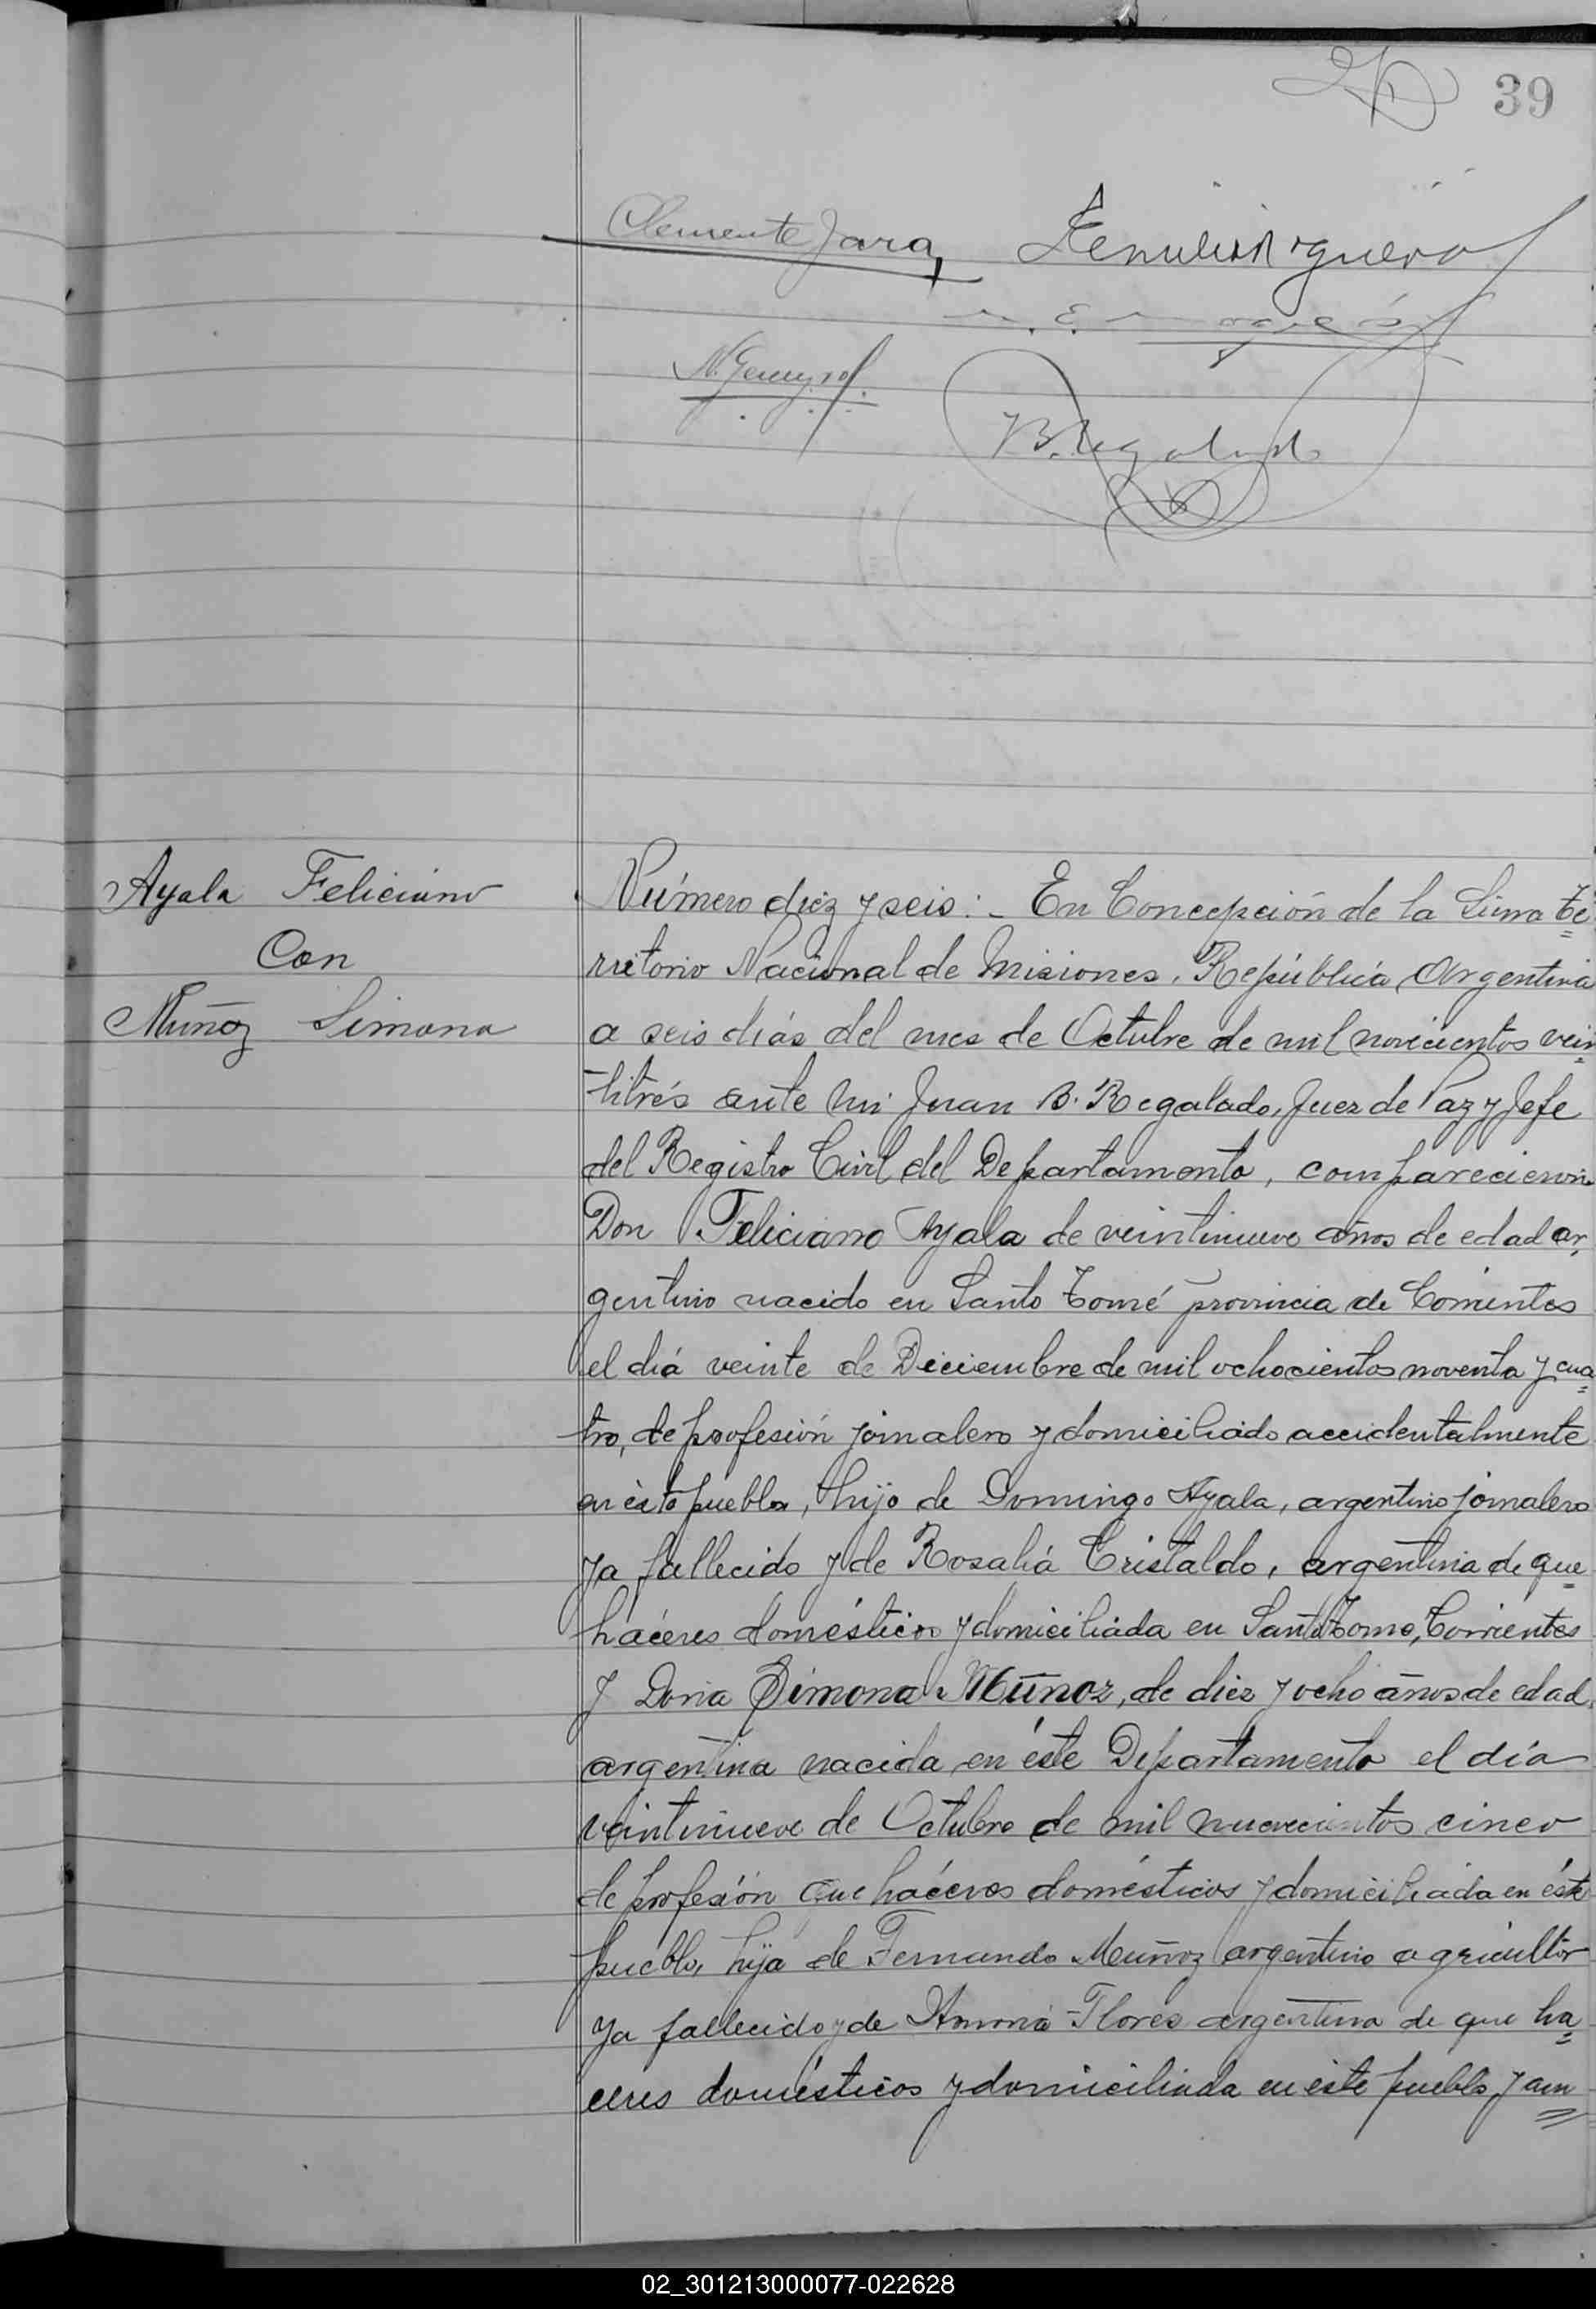 39
Clemente Jara
B. Regalado
Ayala Feliciano
Con
Muñoz Simona
Número diez y seis:- En Concepción de la Sierra Te
rritorio Nacional de Misiones, República Argentina
a seis días del mes de Octubre de mil novecientos vein
titrés ante mi Juan B. Regalado, Juez de Paz y Jefe
del Registro Civil del Departamento, comparecieron
Don Feliciano Ayala de veintinueve años de edad ar
gentino nacido en Santo Tomé provincia de Corrientes
el día veinte de Diciembre de mil ochocientos noventa y cua
tro, de profesión jornalero y domiciliado accidentalmente
en ésto pueblo, hijo de Domingo Ayala, argentino jornalero
ya fallecido y de Rosalía Cristaldo, argentina de que
háceres domésticos y domiciliada en Santo Tomé, Corrientes
y Doña Simona Muñoz, de diez y ocho años de edad,
argentina nacida en éste Departamento el día
veintinueve de Octubre de mil nuevecientos cinco
de profesión que háceres domésticos y domiciliada en éste
pueblo, hija de Fernando Muñoz argentino agricultor
ya fallecido y de Flores argentina de que ha
ceres domésticos y domiciliada en este pueblo, y am
02_301213000077-022628